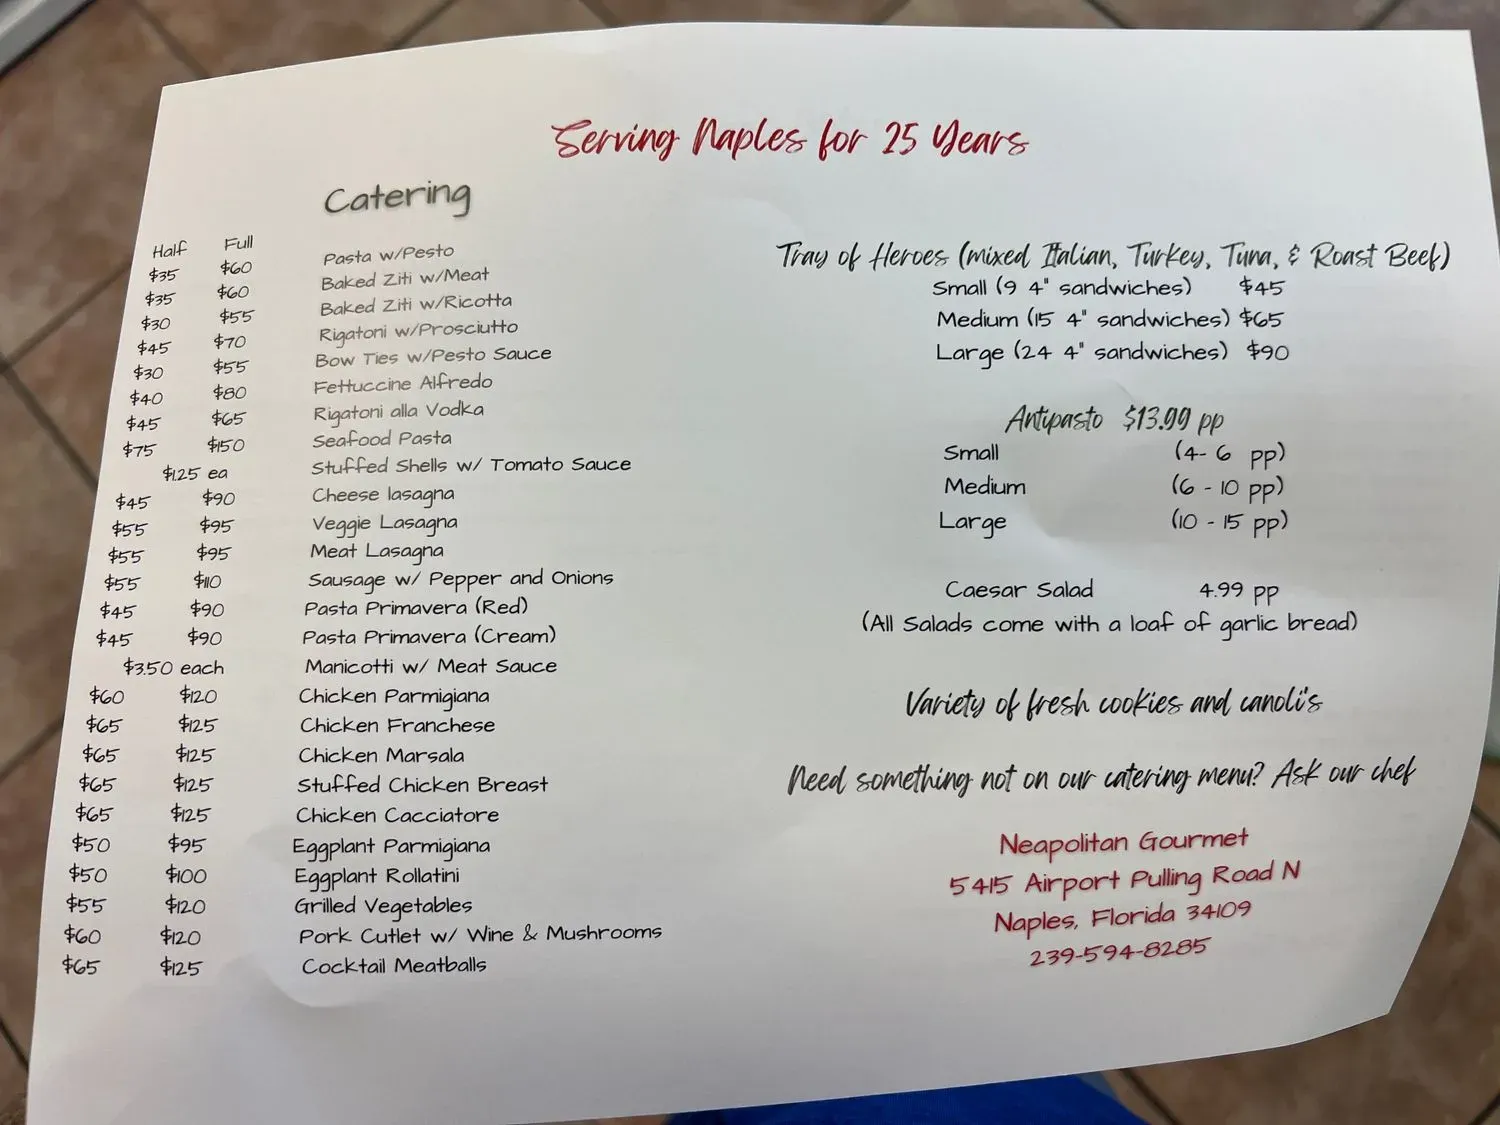 Serving Naples for 25 Years
Catering
Half Full
$35 $60 Pasta w/Pesto
$35 $60 Baked Ziti w/Meat
$30 $55 Baked Ziti w/Ricotta
$45 $70 Rigatoni w/Prosciutto
$30 $55 Bow Ties w/Pesto Sauce
$40 $80 Fettuccine Alfredo
$45 $65 Rigatoni alla Vodka
$75 $150 Seafood Pasta
$1.25 ea Stuffed Shells w/ Tomato Sauce
$45 $90 Cheese lasagna
$55 $95 Veggie Lasagna
$55 $95 Meat Lasagna
$55 $110 Sausage w/ Pepper and Onions
$45 $90 Pasta Primavera (Red)
$45 $90 Pasta Primavera (Cream)
$3.50 each Manicotti w/ Meat Sauce
$60 $120 Chicken Parmigiana
$65 $125 Chicken Franchese
$65 $125 Chicken Marsala
$65 $125 Stuffed Chicken Breast
$65 $125 Chicken Cacciatore
$50 $95 Eggplant Parmigiana
$50 $100 Eggplant Rollatini
$55 $120 Grilled Vegetables
$60 $120 Pork Cutlet w/ Wine & Mushrooms
$65 $125 Cocktail Meatballs
Tray of Heroes (mixed Italian, Turkey, Tuna, & Roast Beef)
Small (9 4" sandwiches) $45
Medium (15 4" sandwiches) $65
Large (24 4" sandwiches) $90
Antipasto $13.99 pp
Small (4- 6 pp)
Medium (6 - 10 pp)
Large (10 - 15 pp)
Caesar Salad 4.99 pp
(All Salads come with a loaf of garlic bread)
Variety of fresh cookies and canoli's
Need something not on our catering menu? Ask our chef
Neapolitan Gourmet
5415 Airport Pulling Road N
Naples, Florida 34109
239-594-8285